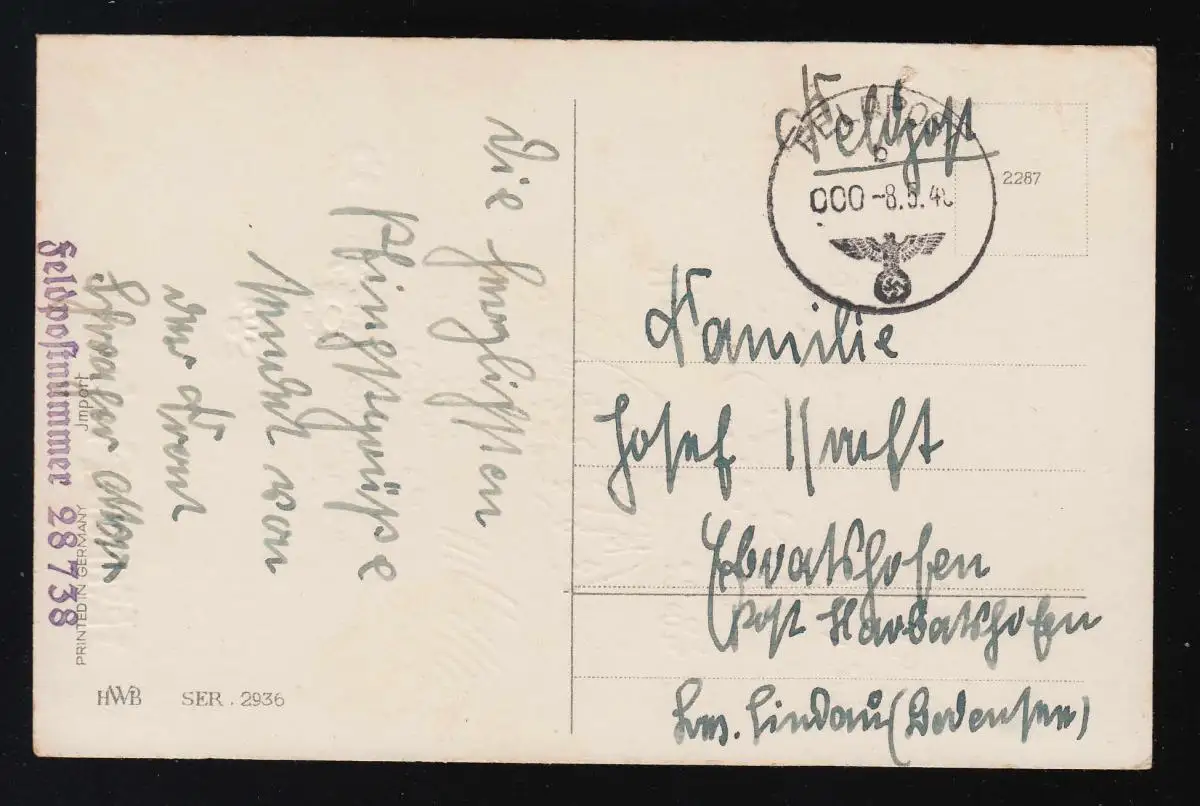 Die herzlichsten
Pfingstgrüße
sendet von
der Front
Schwager
Feldpostnummer 28738
Import
PRINTED IN GERMANY
HWB SER. 2936
Feldpost
FELDPOST
b
000 -8.5.40
2287
Familie
Josef
Ebratshofen
Post Harbatshofen
Bez. Lindau (Bodensee)